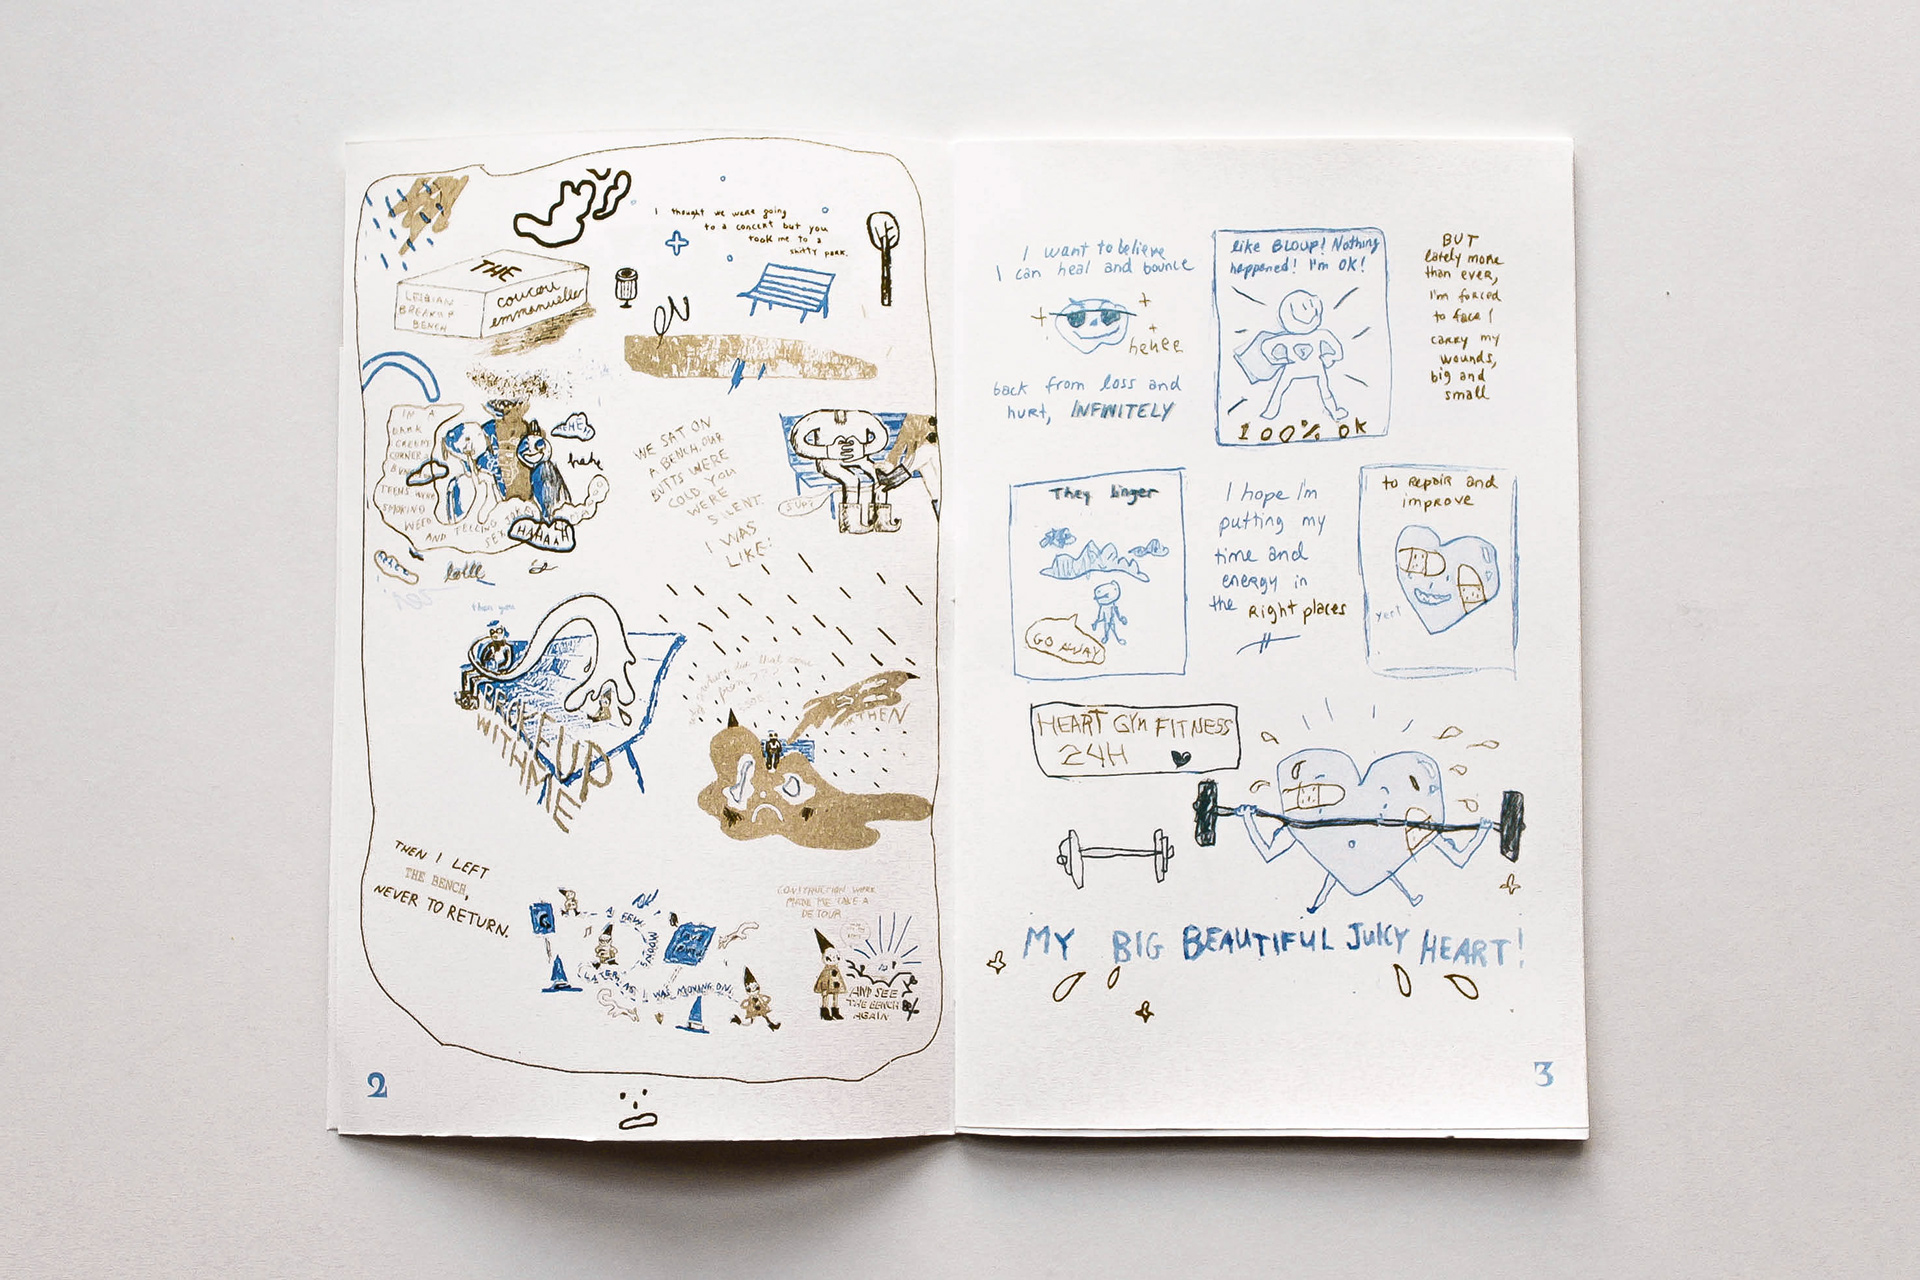 THE
LESBIAN
BREAKUP
BENCH
coucou
emmanuelle
I thought we were going
to a concert but you
took me to a
shitty park.
IN A
DARK
CREEPY
CORNER
TEENS WERE
SMOKING
WEED
AND TELLING
SEX
HEHE,
hehe
HAHAAH
WE SAT ON
A BENCH. OUR
BUTTS WERE
COLD YOU
WERE
SILENT.
I WAS
LIKE:
SUP?
then you
BROKE UP
WITH ME
where did that come
from???
THEN
THEN I LEFT
THE BENCH,
NEVER TO RETURN.
A FEW
LATER, AS I WAS MOVING ON,
CONSTRUCTION WORK
MADE ME TAKE A
DETOUR
AND SEE
THE BENCH
AGAIN
2
I want to believe
I can heal and bounce
hehee
back from loss and
hurt, INFINITELY
like BLOUP! Nothing
happened! I'm OK!
100% OK
BUT
lately more
than ever,
I'm forced
to face I
carry my
wounds,
big and
small
They linger
GO AWAY
I hope I'm
putting my
time and
energy in
the Right places
to Repair and
improve
yes!
HEART GYM FITNESS
24H
MY BIG BEAUTIFUL JUICY HEART!
3